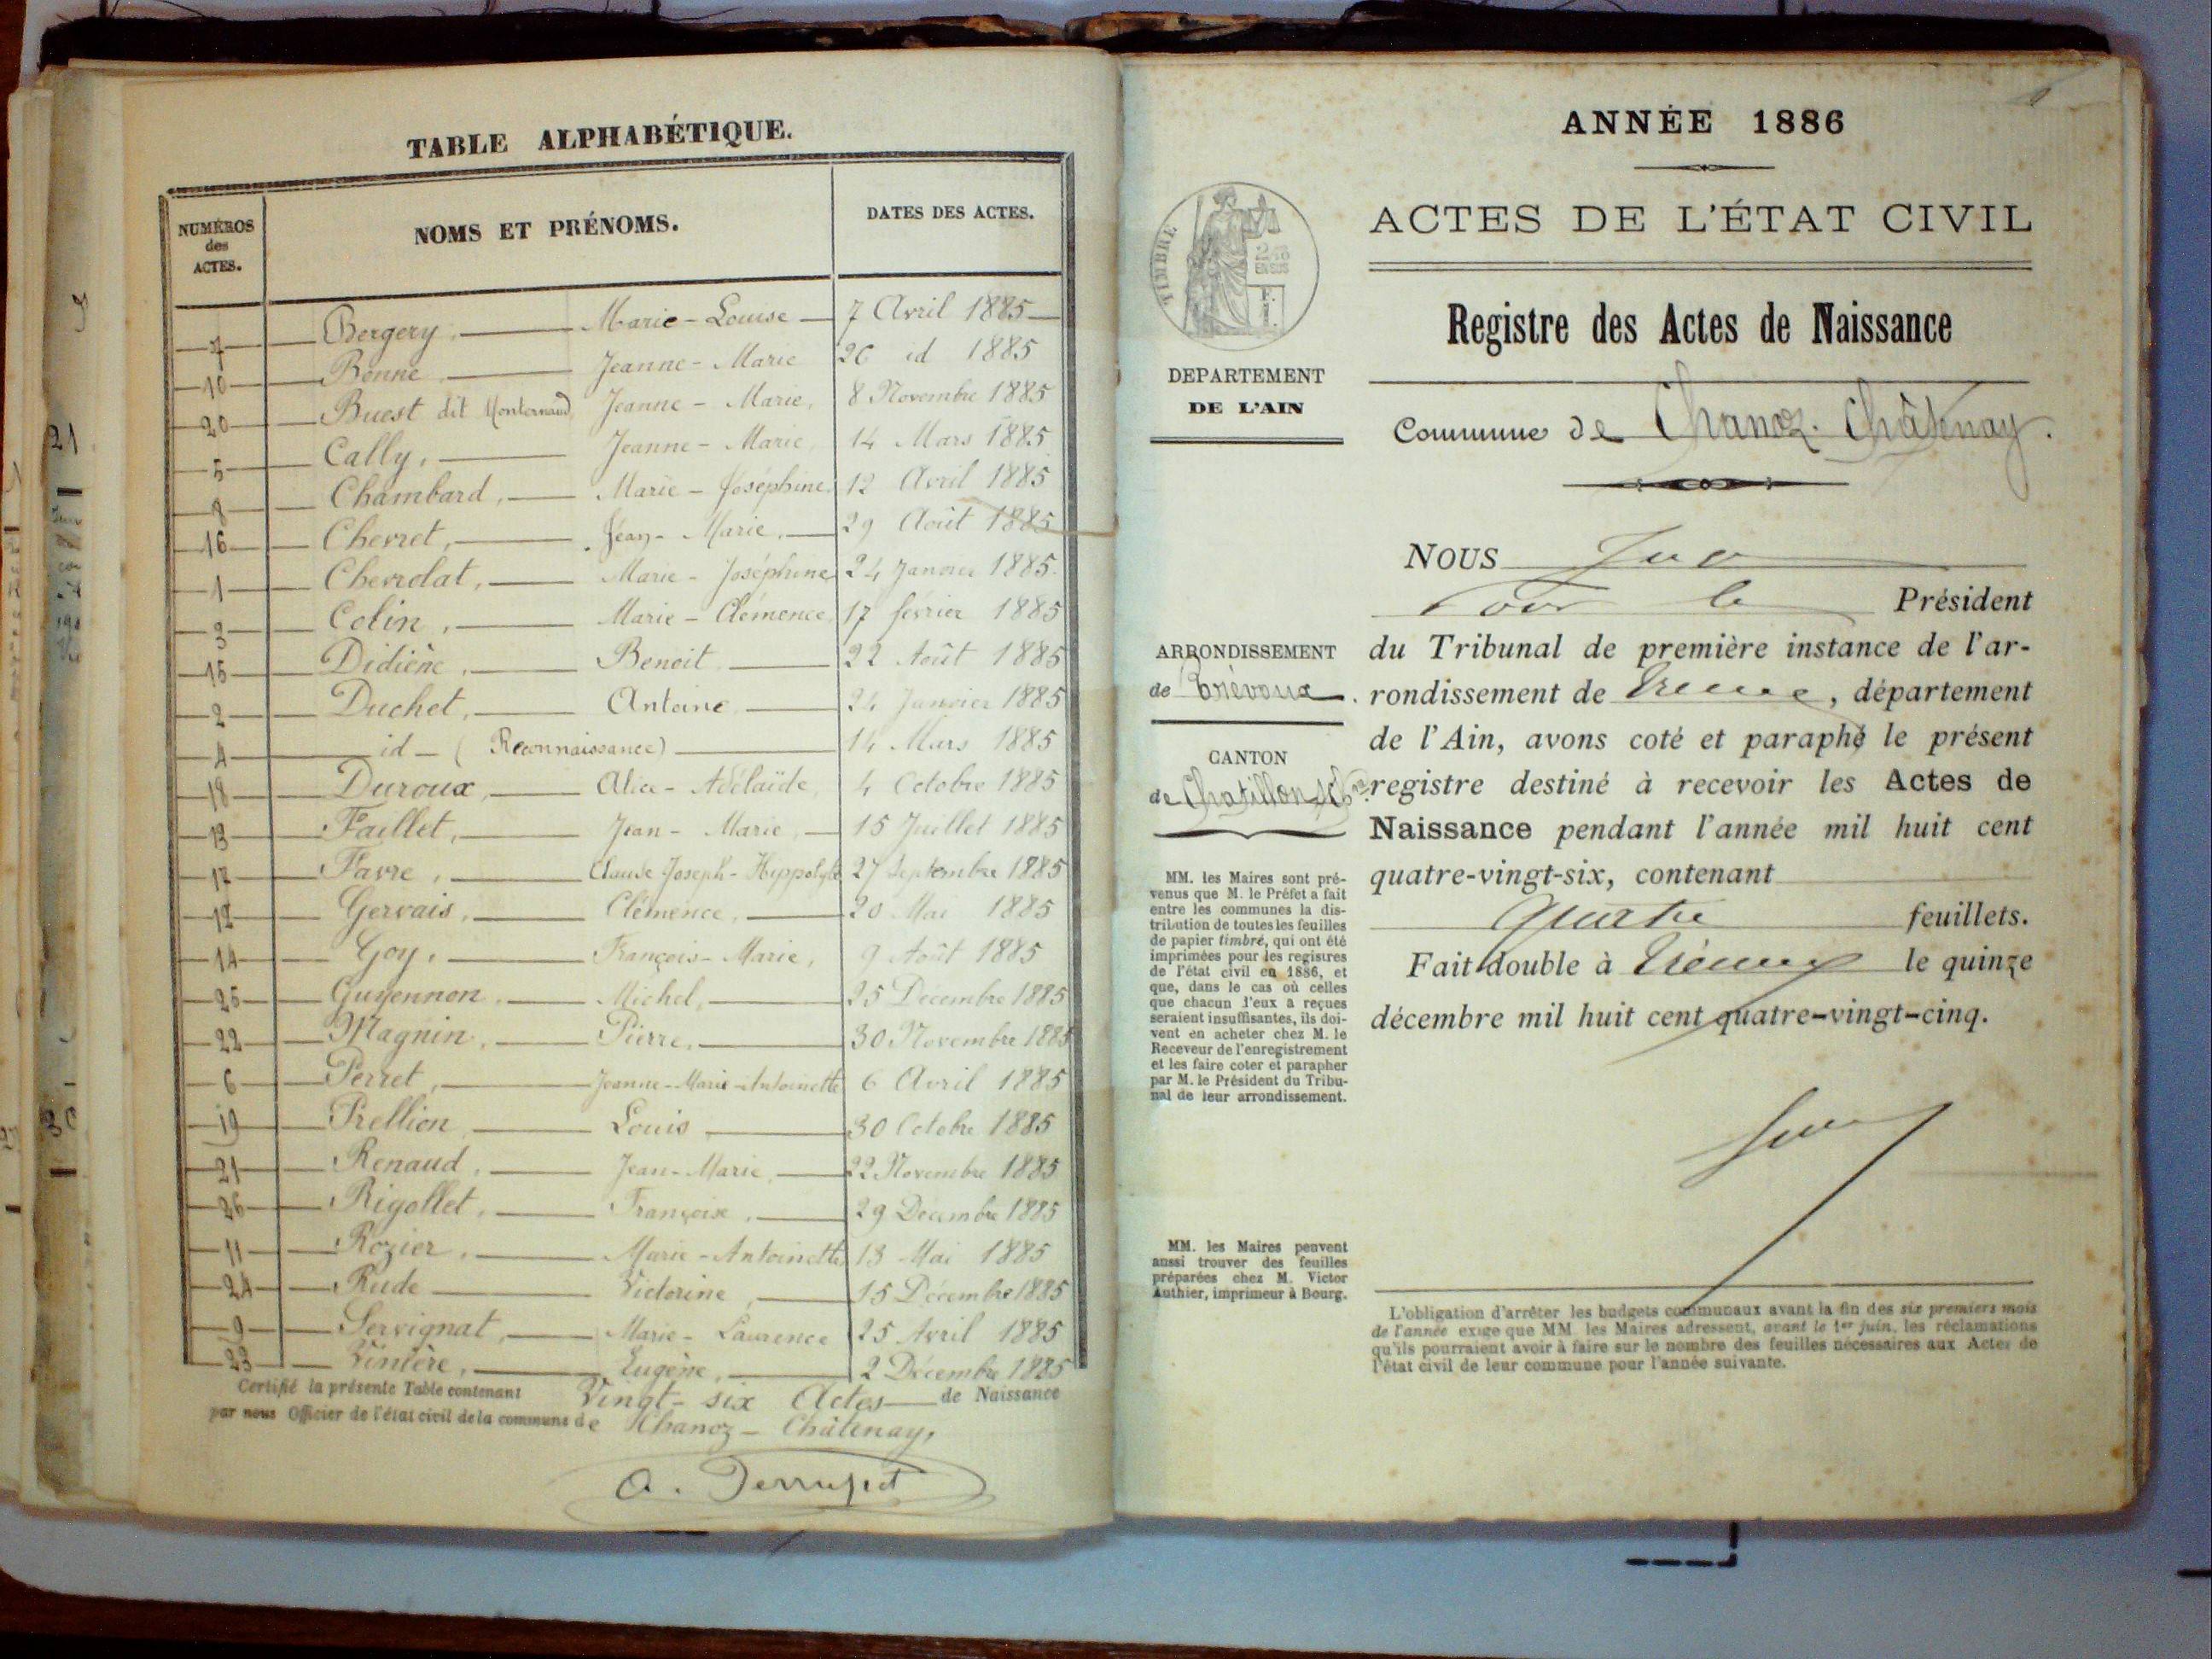 TABLE ALPHABÉTIQUE.
NUMÉROS des ACTES. NOMS ET PRÉNOMS. DATES DES ACTES.
7 Bergery, Marie-Louise 7 Avril 1885
10 Bonne Jeanne-Marie 26 id 1885
20 Buest dit Monternaud, Jeanne-Marie, 8 Novembre 1885
5 Cally, Jeanne-Marie, 14 Mars 1885
8 Chambard, Marie-Joséphine, 12 Avril 1885
16 Chevret, Jean-Marie, 29 Août 1885
1 Chevrolat, Marie-Joséphine 24 Janvier 1885
3 Colin, Marie-Clémence, 17 février 1885
15 Didiène, Benoit 22 Août 1885
2 Duchet, Antoine 24 Janvier 1885
4 id - (Reconnaissance) 14 Mars 1885
18 Duroux, Alice-Adélaïde, 4 Octobre 1885
13 Faillet, Jean-Marie, 15 Juillet 1885
17 Favre, Claude Joseph-Hippolyte 27 Septembre 1885
12 Gervais, Clémence, 20 Mai 1885
14 Goy, François-Marie, 9 Août 1885
25 Guyennon, Michel, 25 Décembre 1885
22 Magnin, Pierre, 30 Novembre 1885
6 Perret, Jeanne-Marie-Antoinette 6 Avril 1885
19 Prellion Louis 30 Octobre 1885
21 Renaud, Jean-Marie, 22 Novembre 1885
26 Rigollet, Françoise, 29 Décembre 1885
11 Rozier, Marie-Antoinette 13 Mai 1885
24 Rude Victorine, 15 Décembre 1885
9 Servignat, Marie-Laurence 25 Avril 1885
23 Vintère, Eugène, 2 Décembre 1885
Certifié la présente Table contenant Vingt-six Actes de Naissance
par nous Officier de l'état civil de la commune de Chanoz-Châtenay,
ANNÉE 1886
ACTES DE L'ÉTAT CIVIL
TIMBRE
EN SUS
Registre des Actes de Naissance
DEPARTEMENT
DE L'AIN
Commune de Chanoz-Châtenay.
NOUS
Pour le Président
ARRONDISSEMENT
de Trévoux.
CANTON
de Chatillon
du Tribunal de première instance de l'ar-
rondissement de Trévoux, département
de l'Ain, avons coté et paraphé le présent
registre destiné à recevoir les Actes de
Naissance pendant l'année mil huit cent
quatre-vingt-six, contenant
quatre feuillets.
Fait double à Trévoux le quinze
décembre mil huit cent quatre-vingt-cinq.
MM. les Maires sont pré-
venus que M. le Préfet a fait
entre les communes la dis-
tribution de toutes les feuilles
de papier timbré, qui ont été
imprimées pour les registres
de l'état civil en 1886, et
que, dans le cas où celles
que chacun d'eux a reçues
seraient insuffisantes, ils doi-
vent en acheter chez M. le
Receveur de l'enregistrement
et les faire coter et parapher
par M. le Président du Tribu-
nal de leur arrondissement.
MM. les Maires peuvent
aussi trouver des feuilles
préparées chez M. Victor
Authier, imprimeur à Bourg.
L'obligation d'arrêter les budgets communaux avant la fin des six premiers mois
de l'année exige que MM. les Maires adressent, avant le 1er juin, les réclamations
qu'ils pourraient avoir à faire sur le nombre des feuilles nécessaires aux Actes de
l'état civil de leur commune pour l'année suivante.